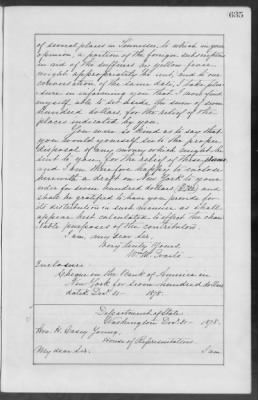 635
of several places in Tennessee to which in your
opinion, a portion of the foreign subscriptions
in aid of the sufferers by yellow fever
might appropriately be sent, and to our
conversation of the same date, I take plea-
sure in informing you that I now find
myself able to set aside the sum of seven
hundred dollars for the relief of the
places indicated by you.
You were so kind as to say that
you would yourself see to the proper
disposal of any money which might be
sent to you, for the relief of these
and I am therefore happy to enclose
herewith a draft on New York to your
order for seven hundred dollars ($700) and
shall be gratified if you provide for
its distribution in such manner as shall
appear best calculated to effect the chari-
table purposes of the contributors.
I am, my dear Sir,
Very truly Yours,
Wm. M. Evarts.
Enclosure:
Cheque on the Bank of America in
New York for seven hundred dollars
dated Decr. 1878.
Department of State
Washington Decr. 1878.
Hon. H. Casey Young,
House of Representatives.
My dear Sir,
I am